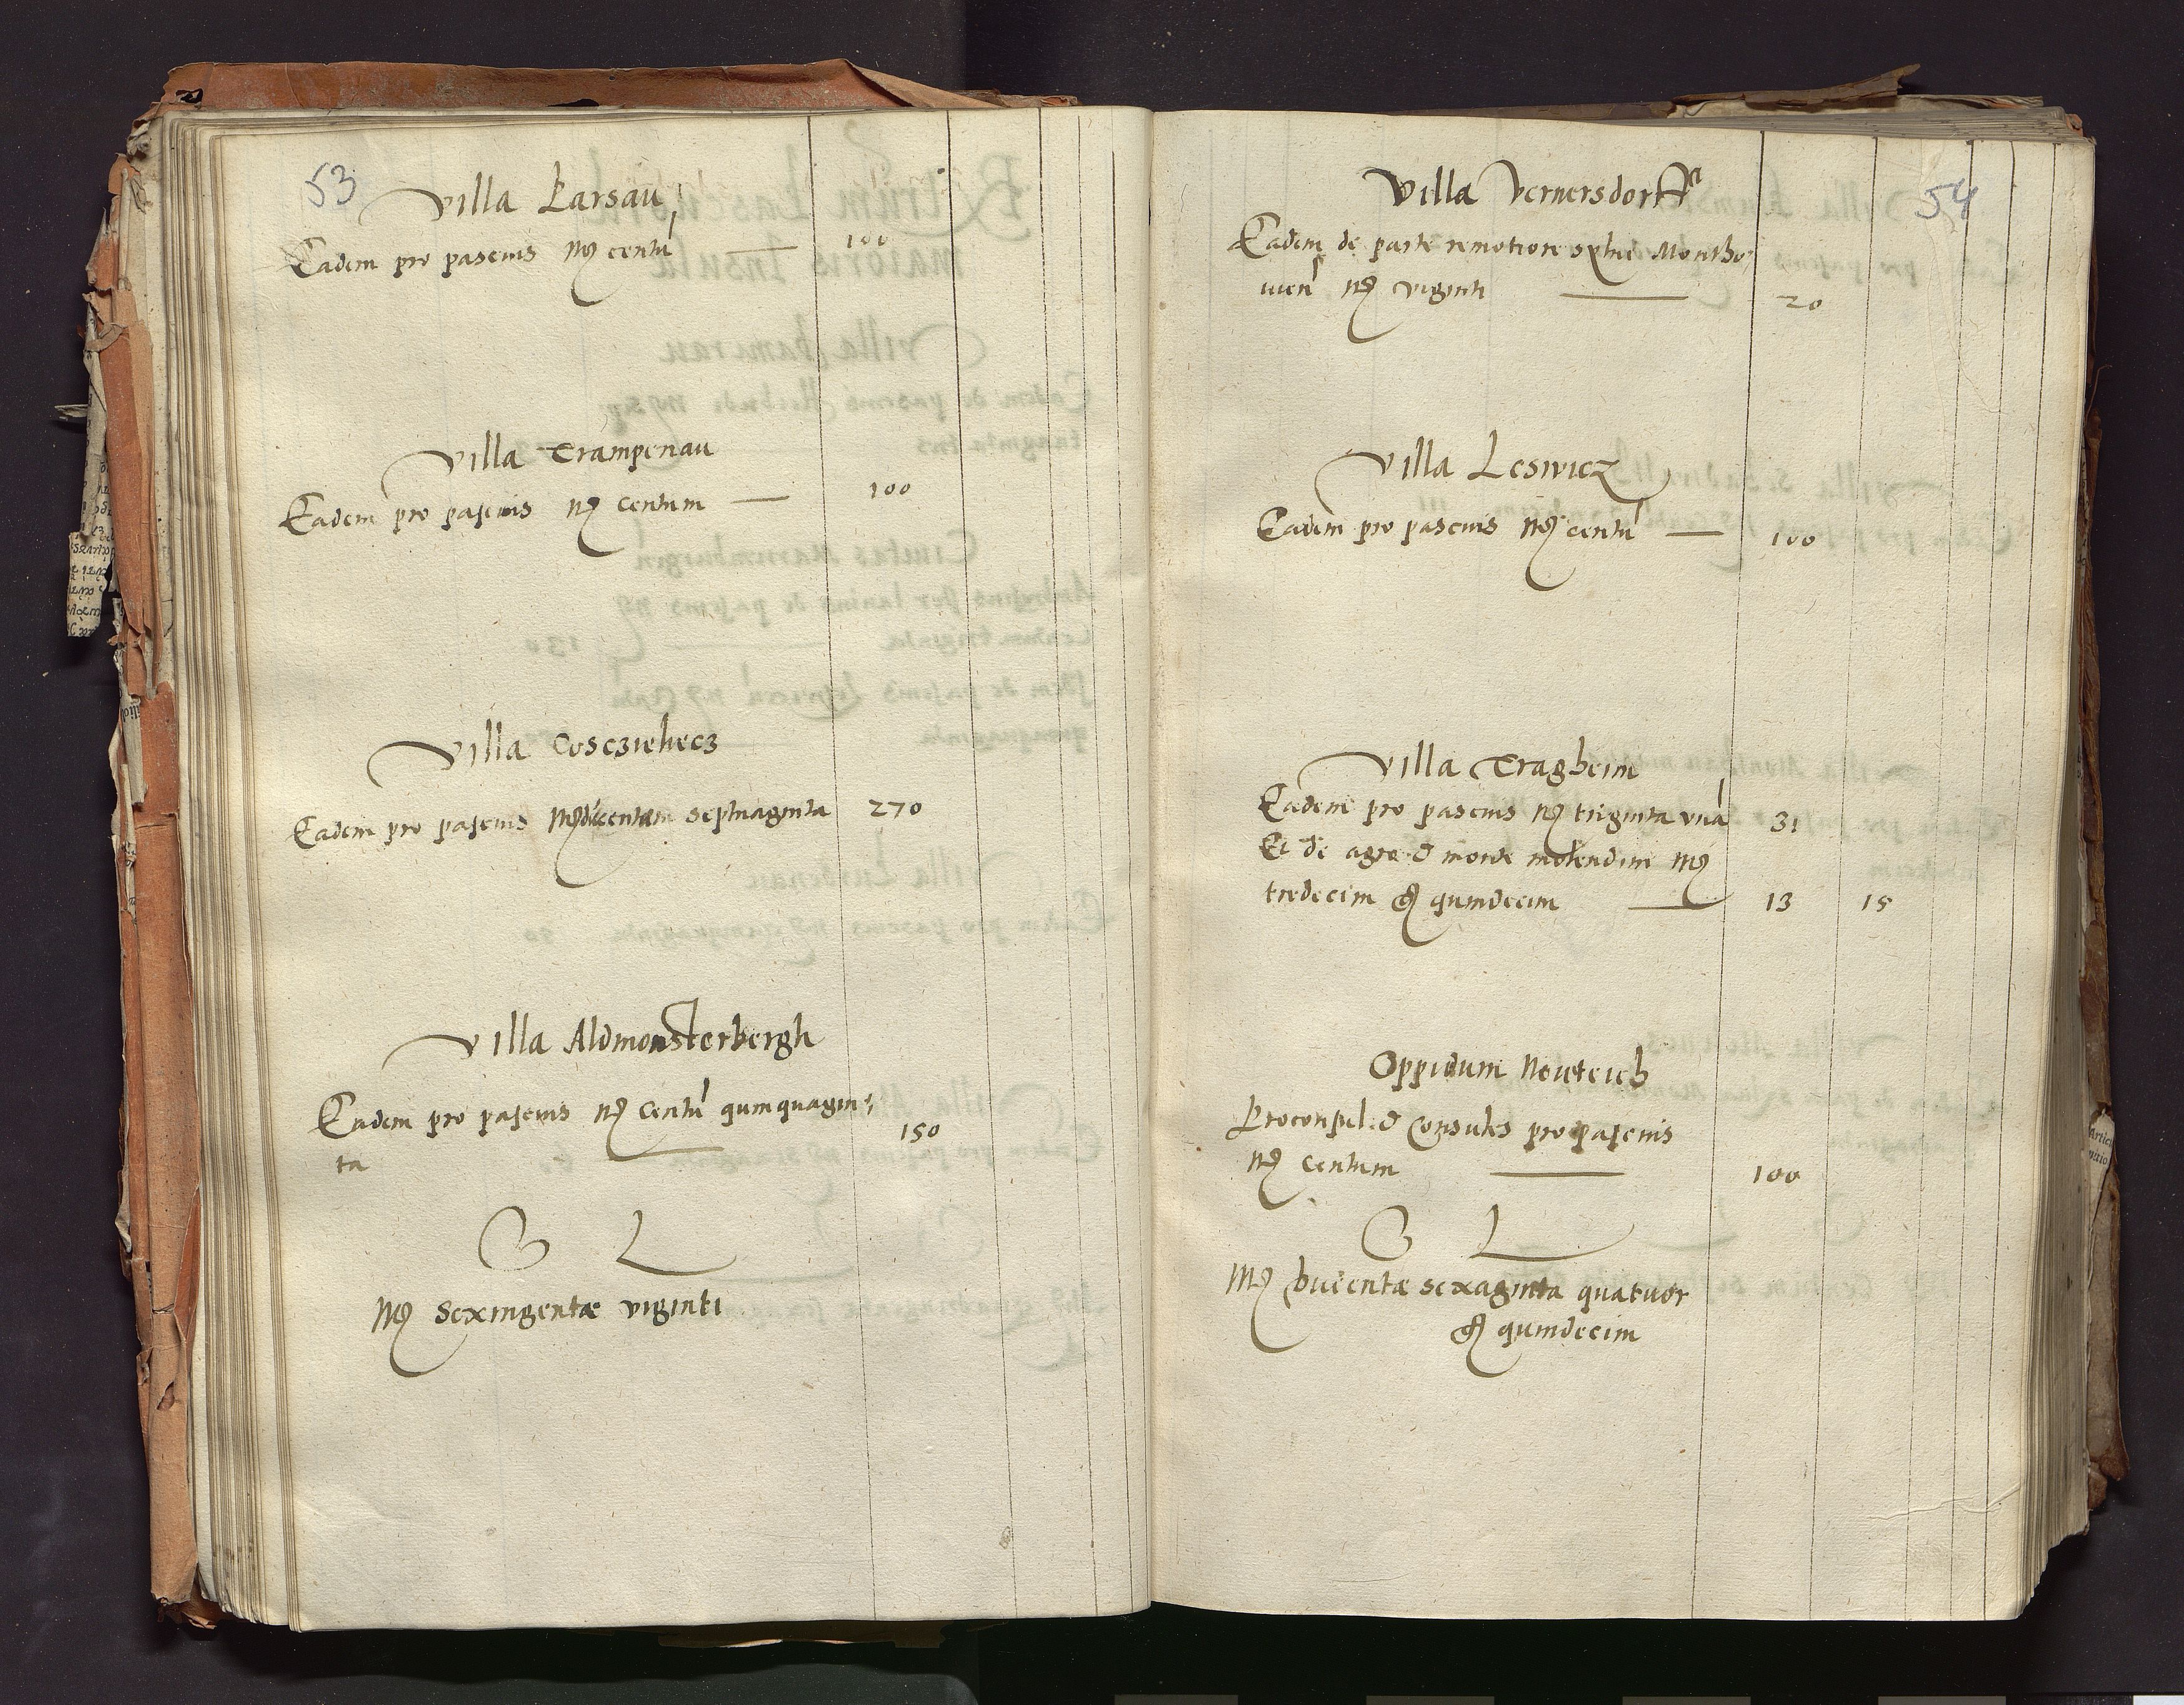 53
Villa Parsau
Eadem pro pascuis mȝ centū — 100
Villa Trampenau
Eadem pro pascuis mȝ centum — 100
Villa Cosczielecz
Eadem pro pascuis mȝ ducentam septuaginta 270
Villa Aldmonsterbergh
Eadem pro pascuis mȝ centū quinquagin,
ta — 150
G L
mȝ sexingentæ viginti
54
Villa Vernersdorff
Eadem de parte remotiore sylue Montho,
uien mȝ viginti — 20
Villa Leswicz
Eadem pro pascuis mȝ centū — 100
Villa Tragheim
Eadem pro pascuis mȝ triginta vnā 31
Et de agro & monte molendini mȝ
tredecim gȝ quindecim — 13 15
Oppidum Noiteich
Proconsul & Consules pro pascuis
mȝ centum — 100
G L
mȝ ducentæ sexaginta quatuor
gȝ quindecim